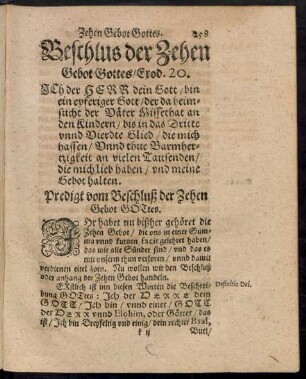 Zehen Gebot Gottes. 258
Beschlus der Zehen
Gebot Gottes/Exod. 20.
ICh der HERR dein Gott/bin
ein eyferiger Gott/der da heim-
sucht der Väter Missethat an
den Kindern/bis in das Dritte
vnnd Vierdte Glied/die mich
hassen/Vnnd thue Barmher-
tzigkeit an vielen Tausenden/
die mich lieb haben/vnd meine
Gebot halten.
Predigt vom Beschluß der Zehen
Gebot GOttes.
IHr habet nu bißher gehöret die
Zehen Gebot/die vns in einer Sum-
ma vnnd kurtzen facit gelehret haben/
das wir alle Sünder sind/vnd das es
mit vnserm thun verloren/vnnd damit
verdienen eitel zorn. Nu wollen wir den Beschluß
oder anhang der Zehen Gebot handeln.
ERstlich ist inn diesen Worten die Beschrei-
bung GOttes: Ich der HERRE dein
GOTT/Ich bin/vnnd einer/GOTT
der HERR vnnd Elohim, oder Götter/das
ist/Ich bin Dreyfeltig vnd einig/dein rechter Baal,
Definitio Dei.
k ij